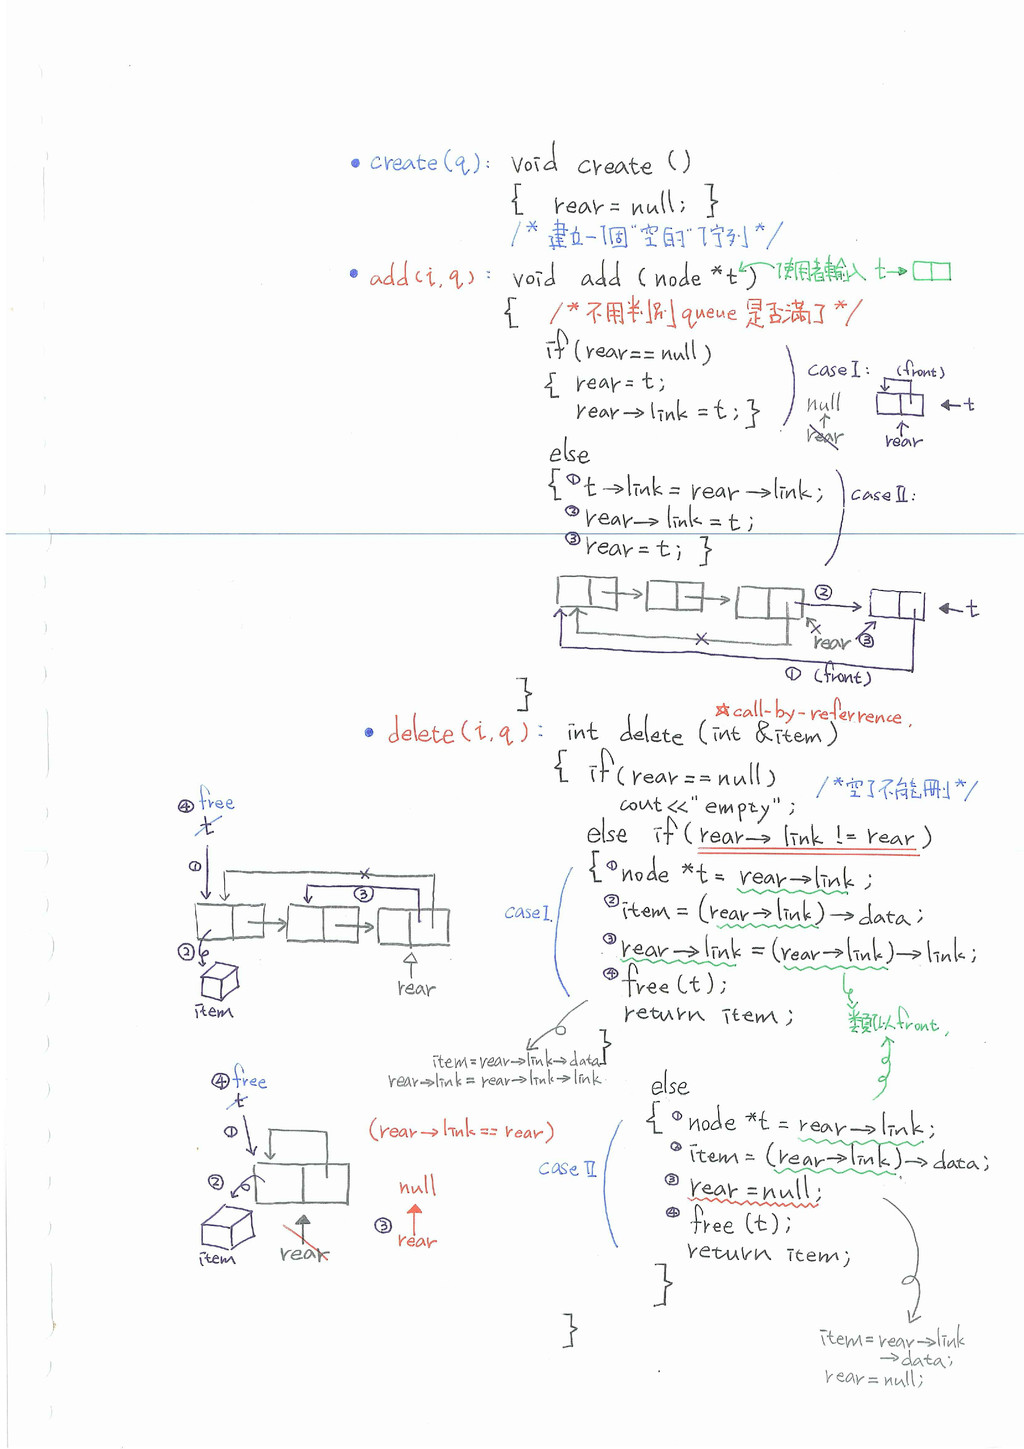 • create(q): void create ()
{ rear = null; }
/* 建立一個"空的"佇列 */
• add(i,q): void add (node *t) 使用者輸入 t→
{ /* 不用判別 queue 是否滿了 */
if (rear == null)
{ rear = t;
rear→link = t; }
case I: (front)
null
←t
rear
rear
else
{ ① t→link = rear→link;
② rear→link = t;
③ rear = t; }
case II:
②
←t
rear ③
① (front)
}
☆call-by-referrence.
• delete(i,q): int delete (int &item)
{ if (rear == null) /*空了不能刪*/
cout << "empty";
else if (rear→link != rear)
{ ① node *t = rear→link;
② item = (rear→link)→data;
③ rear→link = (rear→link)→link;
④ free(t);
return item;
}
case I.
類似front.
④ free
t
①
③
②
rear
item
item = rear→link→data
rear→link = rear→link→link
else
{ ① node *t = rear→link;
② item = (rear→link)→data;
③ rear = null;
④ free (t);
return item;
}
case II
④ free
t
①
(rear→link == rear)
②
null
③
rear
rear
item
}
item = rear→link
→data;
rear = null;